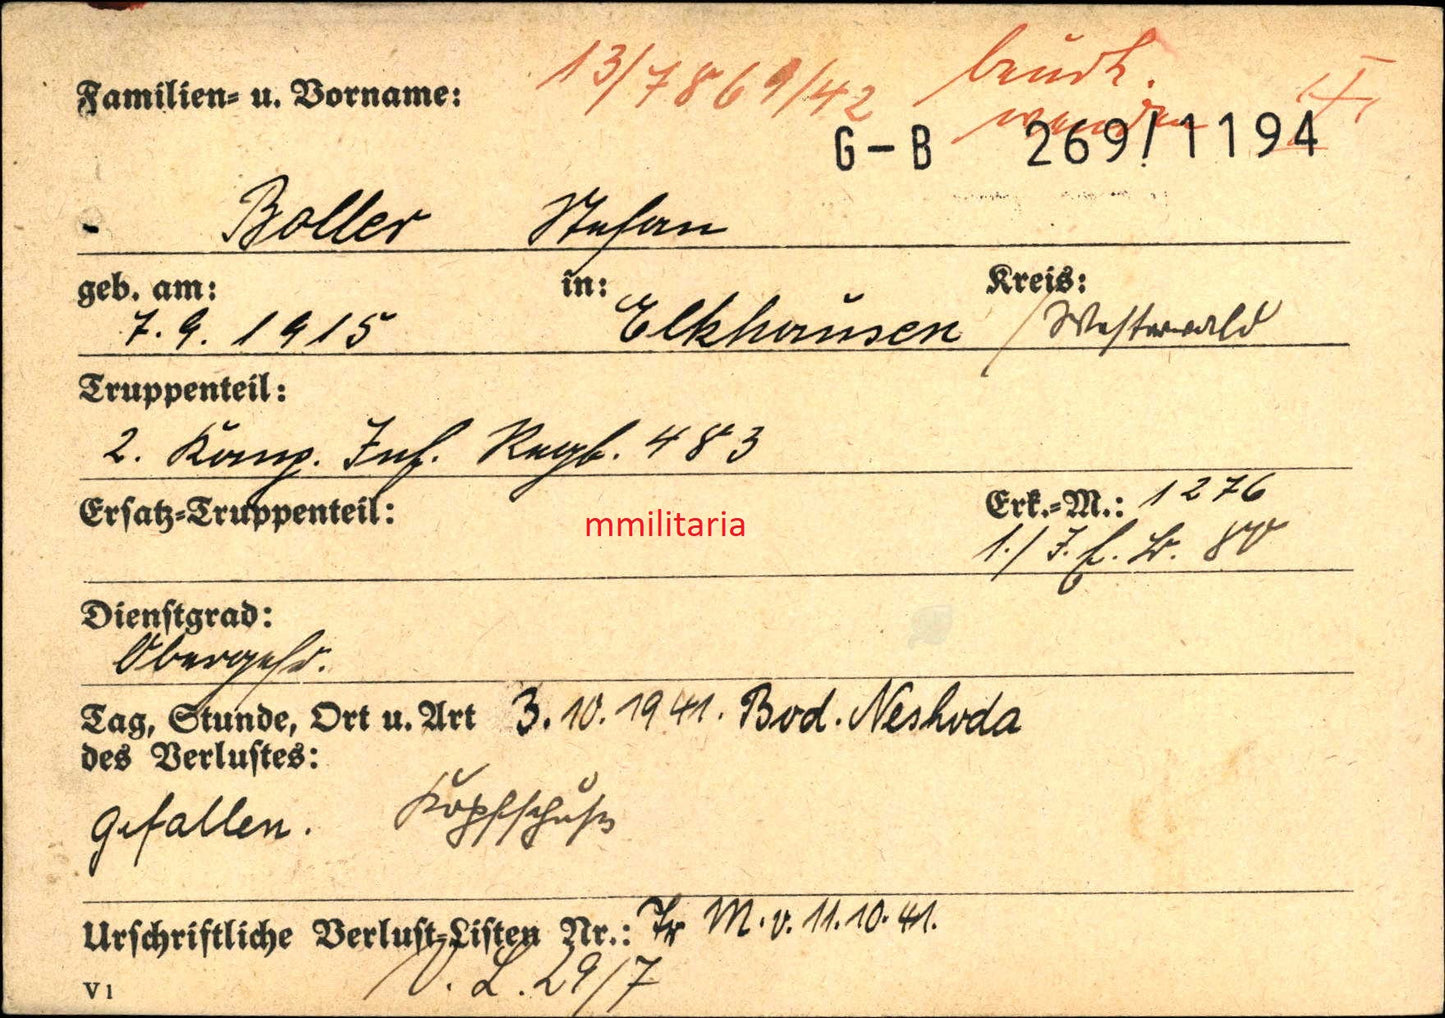 13/7869/42
Familien- u. Vorname:
G-B 269/1194
Boller Stefan
geb. am: in: Kreis:
7.9.1915 Elkhausen / Westerwald
Truppenteil:
2. Komp. Inf. Regt. 483
Ersatz-Truppenteil: Erk.-M.: 1276
mmilitaria
Dienstgrad:
Obergefr.
Tag, Stunde, Ort u. Art 3.10.1941. Bod. Neshoda
des Verlustes:
gefallen. Kopfschuß
Urschriftliche Verlust-Listen Nr.: Tr M. v. 11.10.41.
V. L. 29/7
V 1